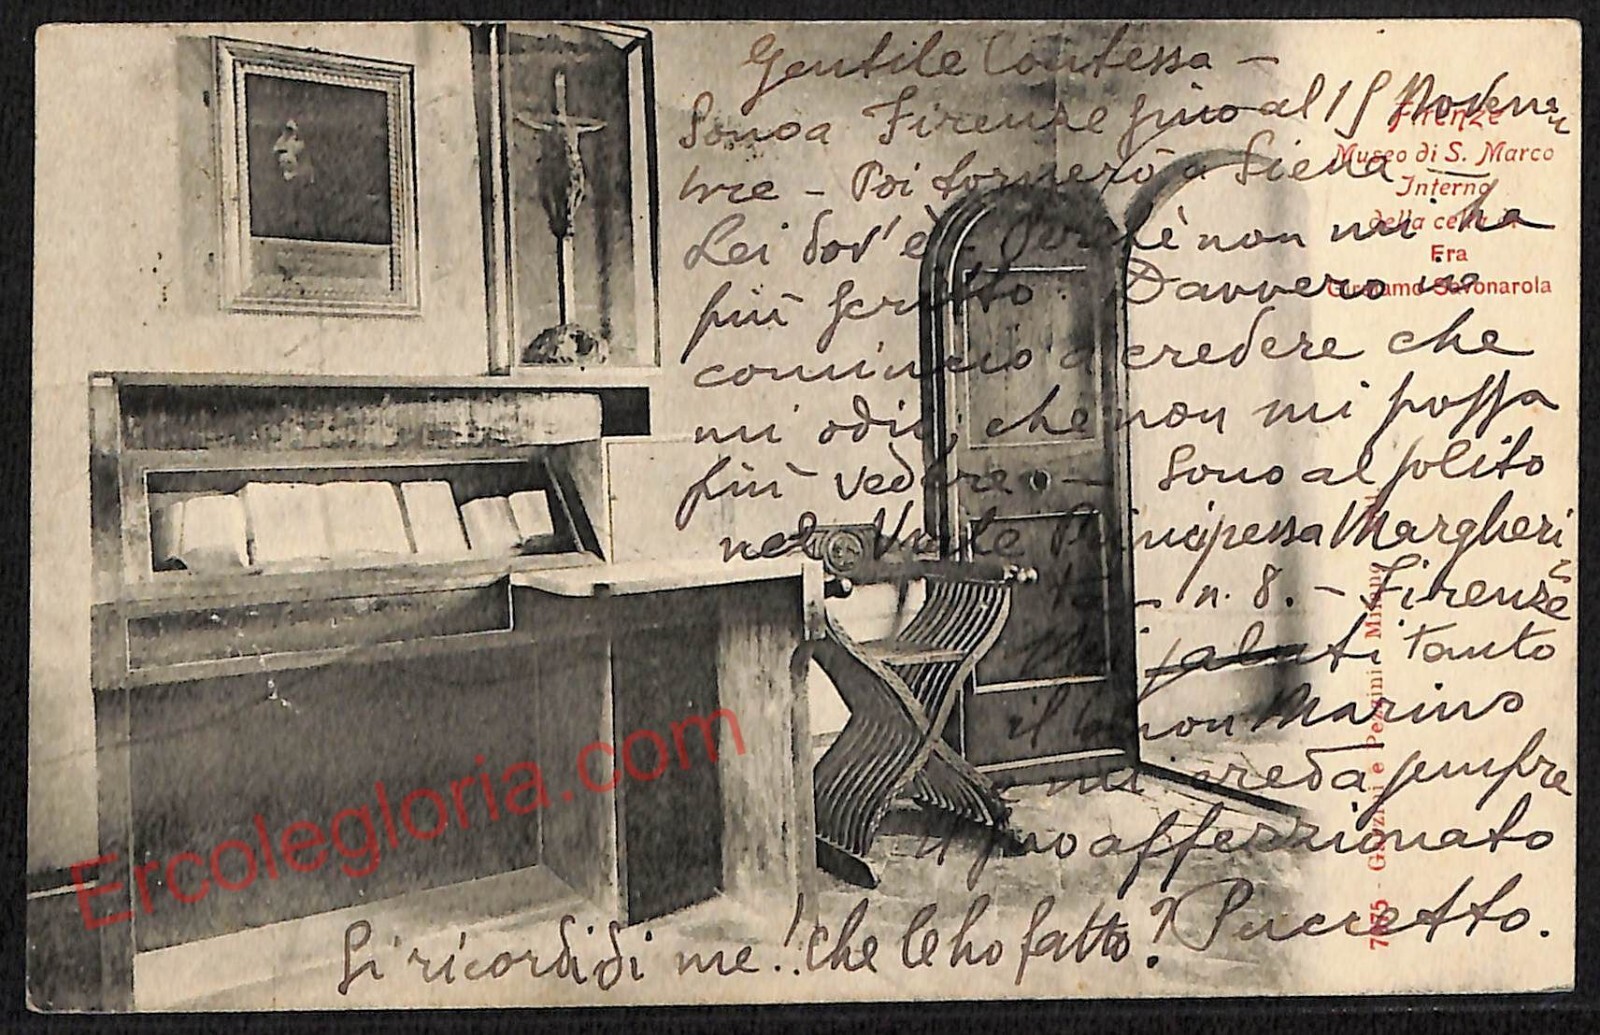 Gentile Contessa —
Sono a Firenze fino al 15 Novem
bre — Poi tornerò a Siena
Lei dov'è? Perchè non mi ha
più scritto? Davvero io
comincio a credere che
mi odii, che non mi possa
più vedere — Sono al solito
nel Viale Principessa Margheri
ta — n. 8. — Firenze
Mi saluti tanto
il buon Marino
e mi creda sempre
il suo affezzionato
Puccetto.
Si ricordi di me! Che le ho fatto?
Firenze
Museo di S. Marco
Interno
della cella di
Fra
Girolamo Savonarola
7675 - Milano
Ercolegloria.com